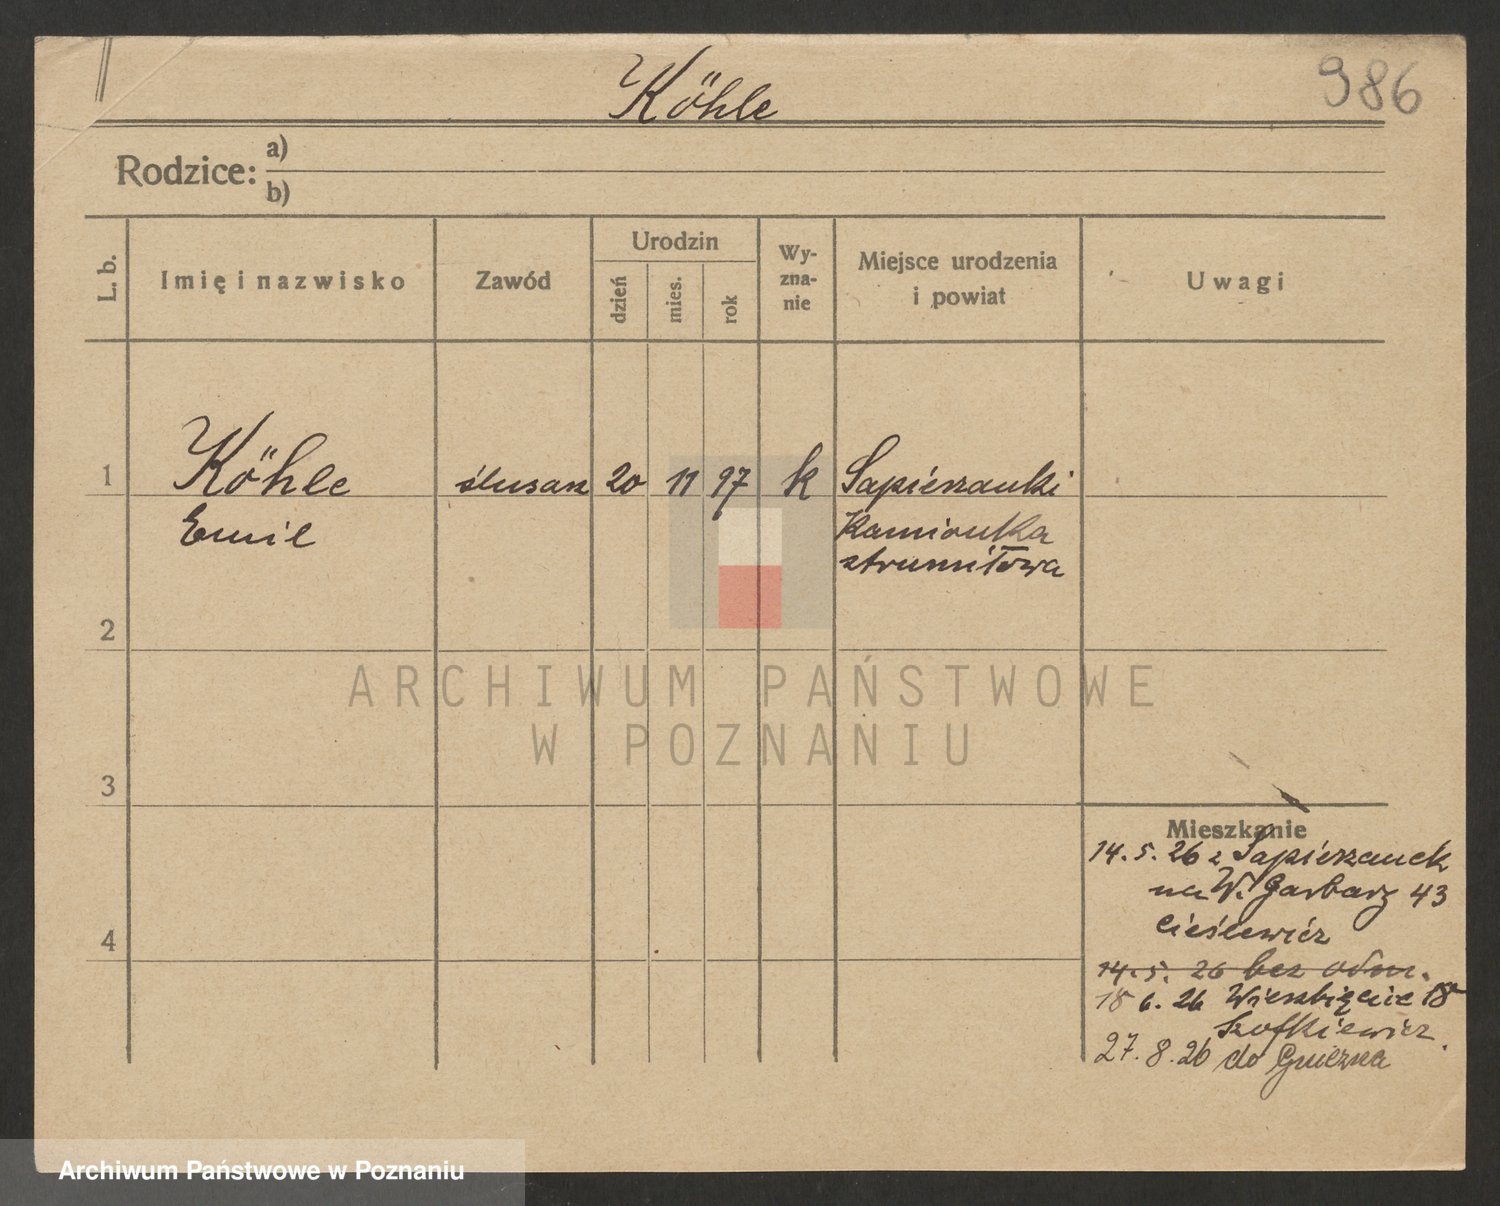 Köhle
986
Rodzice: a)
b)
L. b.
Imię i nazwisko
Zawód
Urodzin
dzień
mies.
rok
Wy-
zna-
nie
Miejsce urodzenia
i powiat
Uwagi
1
Köhle
Emil
ślusarz
20
11
97
k
Sapieżanki
Kamionka
strumiłowa
2
3
4
ARCHIWUM PAŃSTWOWE
W POZNANIU
Mieszkanie
14. 5. 26 z Sapieżanek
na W. Garbarz 43
Cieślewicz
14. 5. 26 bez odm.
18 6. 26 Wierzbięcie 18
Szofkiewicz.
27. 8. 26 do Gniezna
Archiwum Państwowe w Poznaniu